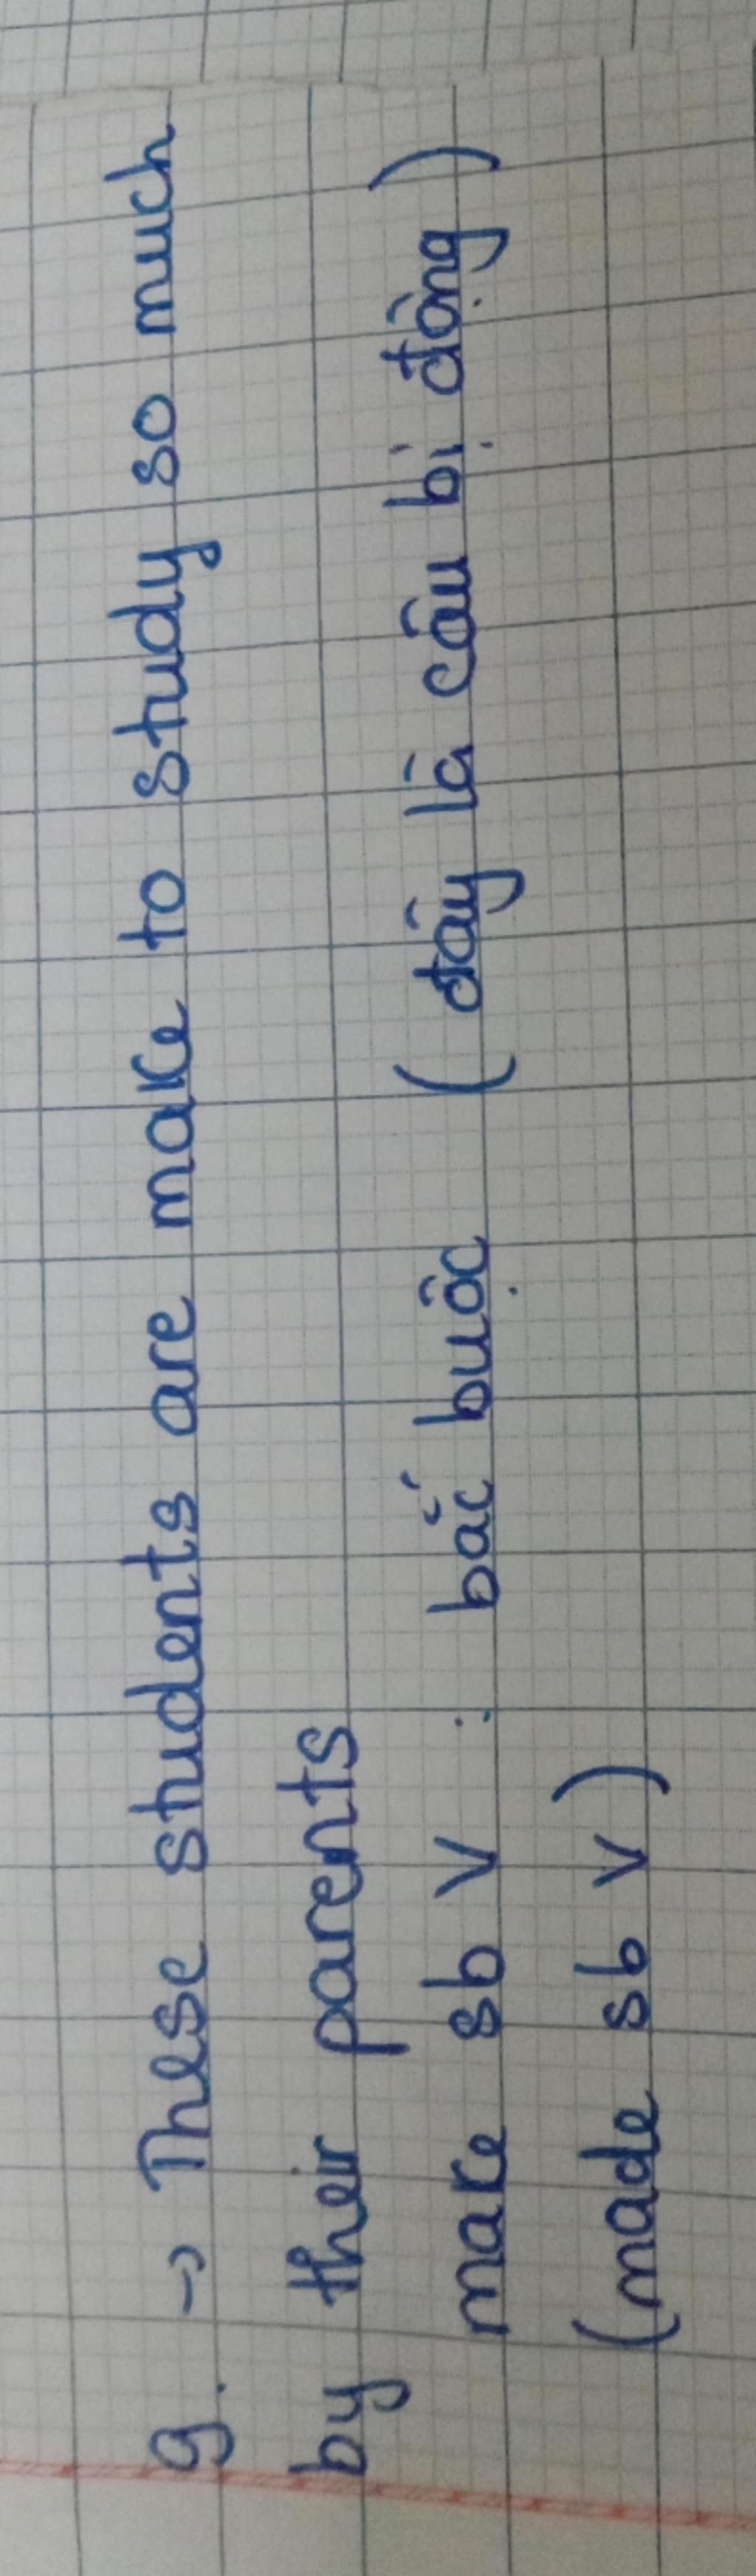 9. → These students are make to study so much
by their parents
make sb V : bắc buộc ( đây là câu bị động )
(made sb V)